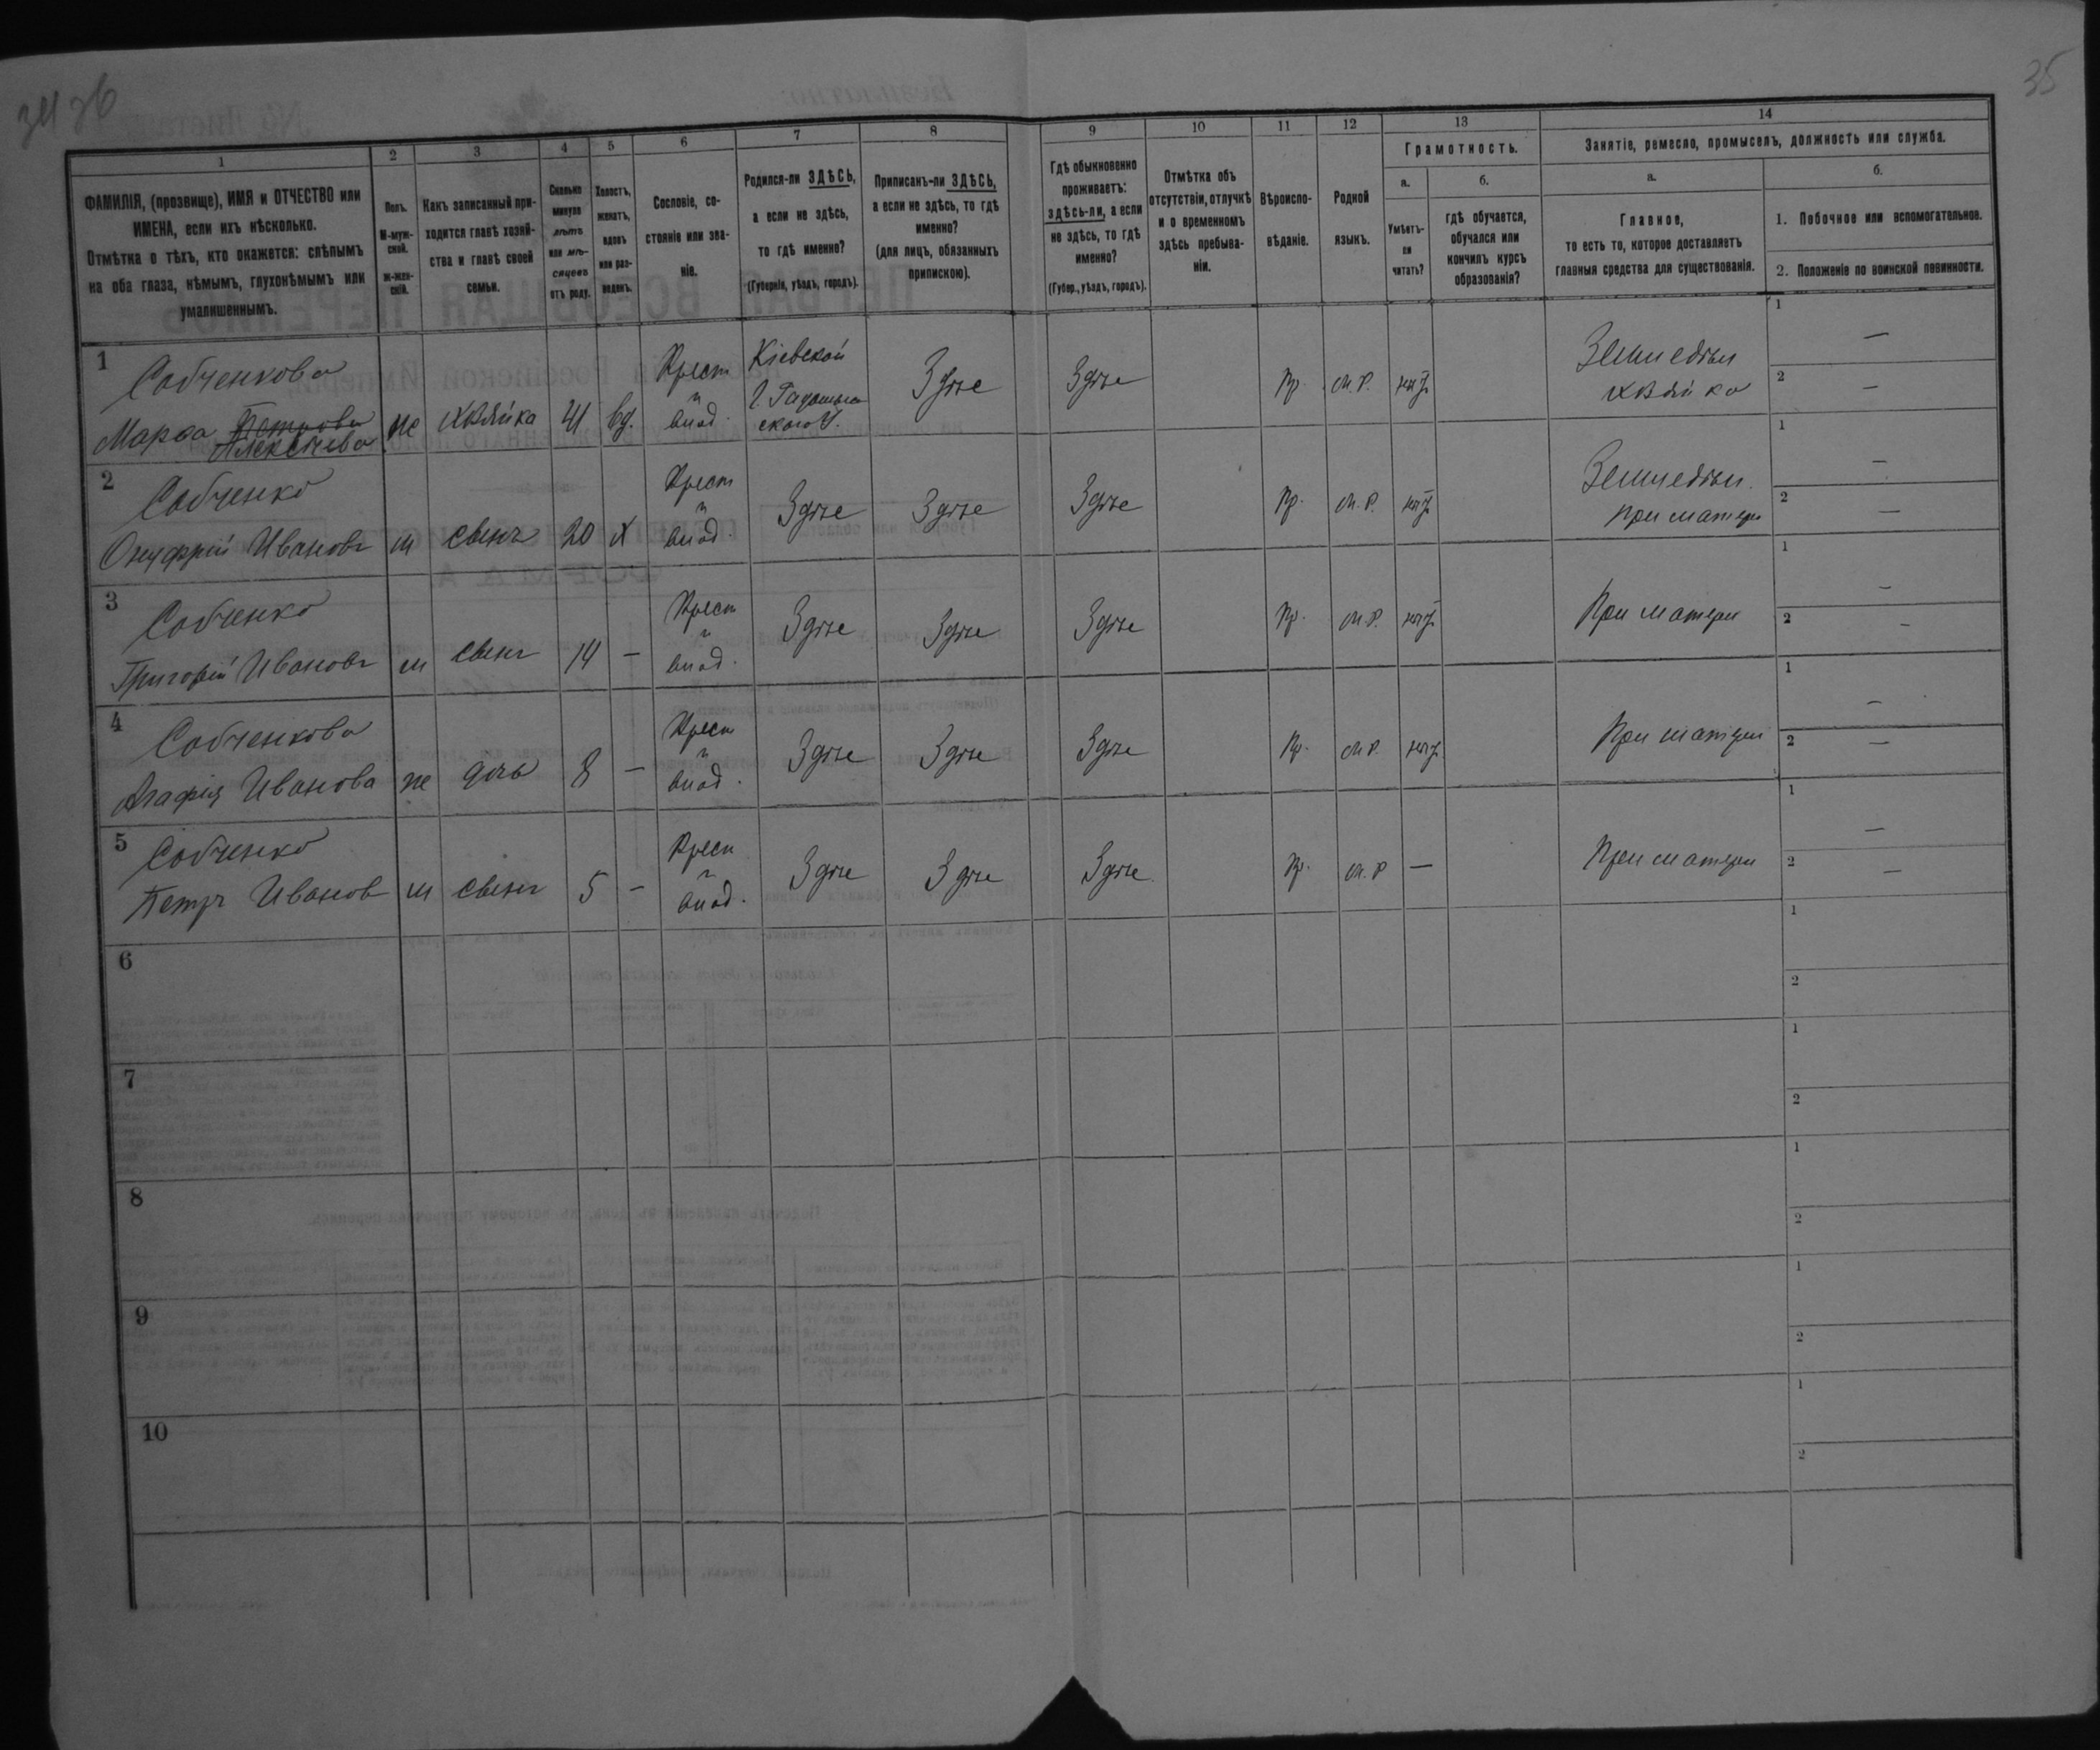 34 36
35
1
2
3
4
5
6
7
8
9
10
11
12
13
14
ФАМИЛІЯ, (прозвище), ИМЯ и ОТЧЕСТВО или
ИМЕНА, если ихъ нѣсколько.
Отмѣтка о тѣхъ, кто окажется: слѣпымъ
на оба глаза, нѣмымъ, глухонѣмымъ или
умалишеннымъ.
Полъ.
М-муж-
ской.
ж-жен-
скій.
Какъ записанный при-
ходится главѣ хозяй-
ства и главѣ своей
семьи.
Сколько
минуло
лѣтъ
или мѣ-
сяцевъ
отъ роду.
Холостъ,
женатъ,
вдовъ
или раз-
веденъ.
Сословіе, со-
стояніе или зва-
ніе.
Родился-ли ЗДѢСЬ,
а если не здѣсь,
то гдѣ именно?
(Губернія, уѣздъ, городъ).
Приписанъ-ли ЗДѢСЬ,
а если не здѣсь, то гдѣ
именно?
(для лицъ, обязанныхъ
припискою).
Гдѣ обыкновенно
проживаетъ:
здѣсь-ли, а если
не здѣсь, то гдѣ
именно?
(Губер., уѣздъ, городъ).
Отмѣтка объ
отсутствіи, отлучкѣ
и о временномъ
здѣсь пребыва-
ніи.
Вѣроиспо-
вѣданіе.
Родной
языкъ.
Грамотность.
а.
Умѣетъ-
ли
читать?
б.
гдѣ обучается,
обучался или
кончилъ курсъ
образованія?
Занятіе, ремесло, промыселъ, должность или служба.
а.
Главное,
то есть то, которое доставляетъ
главныя средства для существованія.
б.
1. Побочное или вспомогательное.
2. Положеніе по воинской повинности.
1
Собченкова
Марѳа Петрова
Алексѣева
ж
хозяйка
41
вд.
Крест
влад.
Кіевской
г.
Здѣсь
Здѣсь
Пр.
М.Р.
нѣт
Земледѣл
хозяйка
1 —
2 —
2
Собченко
Онуфрій Ивановъ
м
сынъ
20
х
Крест
влад.
Здѣсь
Здѣсь
Здѣсь
Пр.
М.Р.
нѣт
Земледѣл.
при матери
1 —
2 —
3
Собченко
Григорій Ивановъ
м
сынъ
14
—
Крест
влад.
Здѣсь
Здѣсь
Здѣсь
Пр.
М.Р.
нѣт
При матери
1 —
2 —
4
Собченкова
Агафія Иванова
ж
дочь
8
—
Крест
влад.
Здѣсь
Здѣсь
Здѣсь
Пр.
М.Р.
нѣт
При матери
1 —
2 —
5
Собченко
Петръ Иванов
м
сынъ
5
—
Крест
влад.
Здѣсь
Здѣсь
Здѣсь
Пр.
М.Р
—
При матери
1 —
2 —
6
1
2
7
1
2
8
1
2
9
1
2
10
1
2